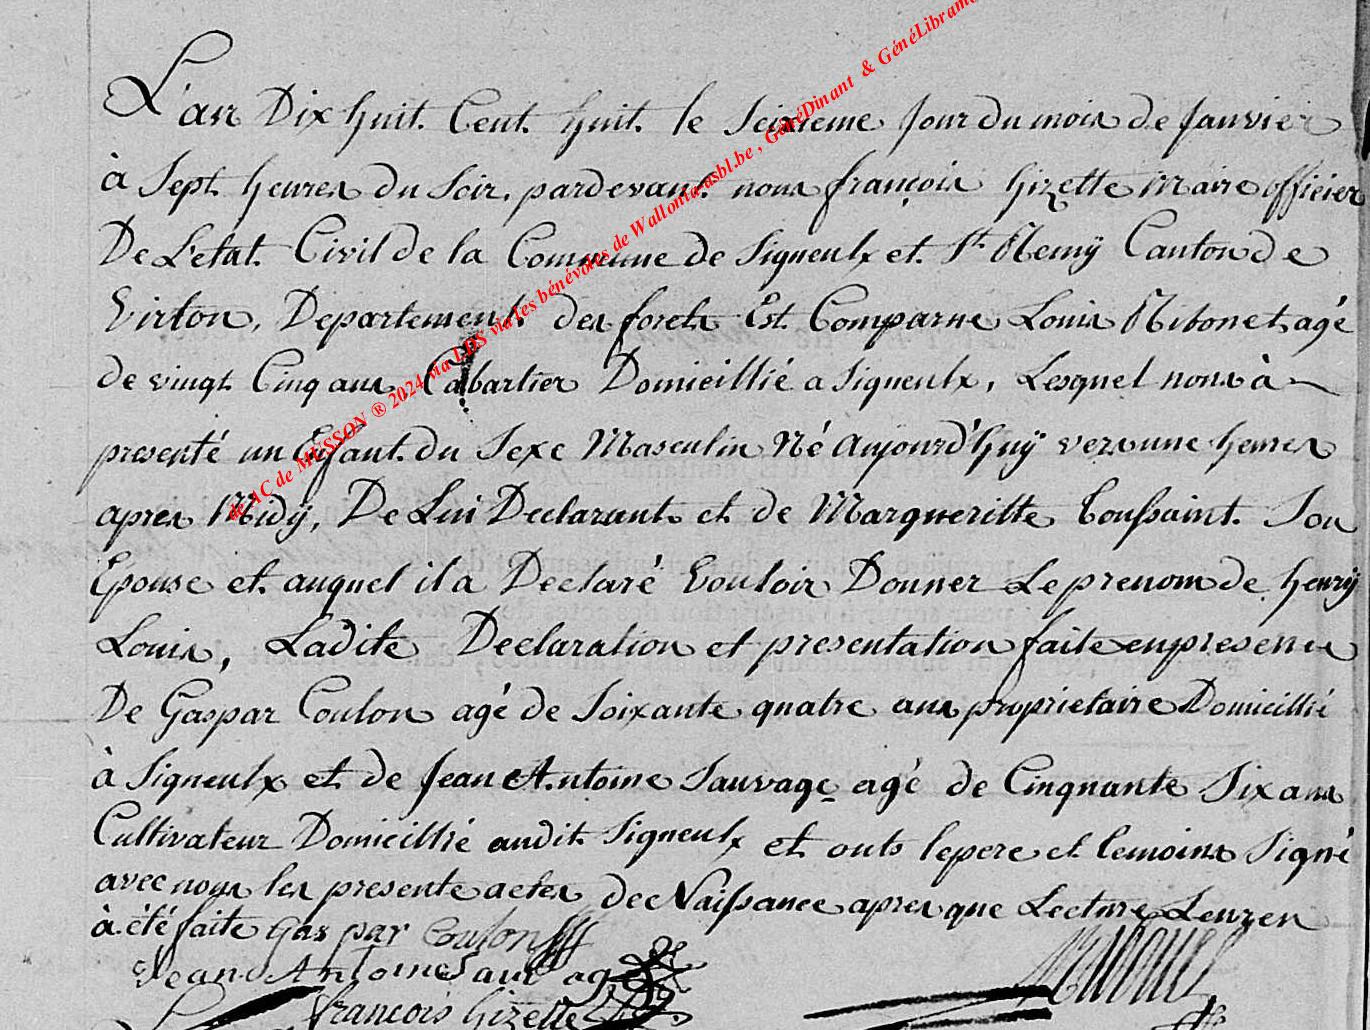 L'an Dix huit Cent huit le Seixieme Jour du mois de Janvier
à Sept heures du Soir, pardevant nous françois Gizette Maire officier
De L'état Civil de la Commune de Signeulx et St Remÿ Canton de
Virton, Departement des forets Est Comparue Louis Ribonet agé
de vingt Cinq ans, Cabartier Domicillié a Signeulx, Lesquel nous à
presenté un Enfant du Sexe Masculin Né Aujourd'huÿ vers une heures
apres Midÿ, De Lui Declarant et de Margueritte Toussaint Son
Epouse et auquel il a Declaré Vouloir Donner Le prenom de henrÿ
Louis, Ladite Declaration et presentation faite en presence
De Gaspar Coulon agé de Soixante quatre ans proprietaire Domicillié
à Signeulx et de Jean Antoine Sauvage agé de Cinquante Six ans
Cultivateur Domicillié audit Signeulx et onts le pere et temoins Signé
avec nous les presente actes de Naissance apres que Lecture Leurs en
à été faite Gaspar Coulon
Jean Antoine Sauvage
françois Gizette
de AC de MUSSON ® 2024 via LDS via les bénévoles de Wallonia-asbl.be , GénéDinant & GénéLibramo